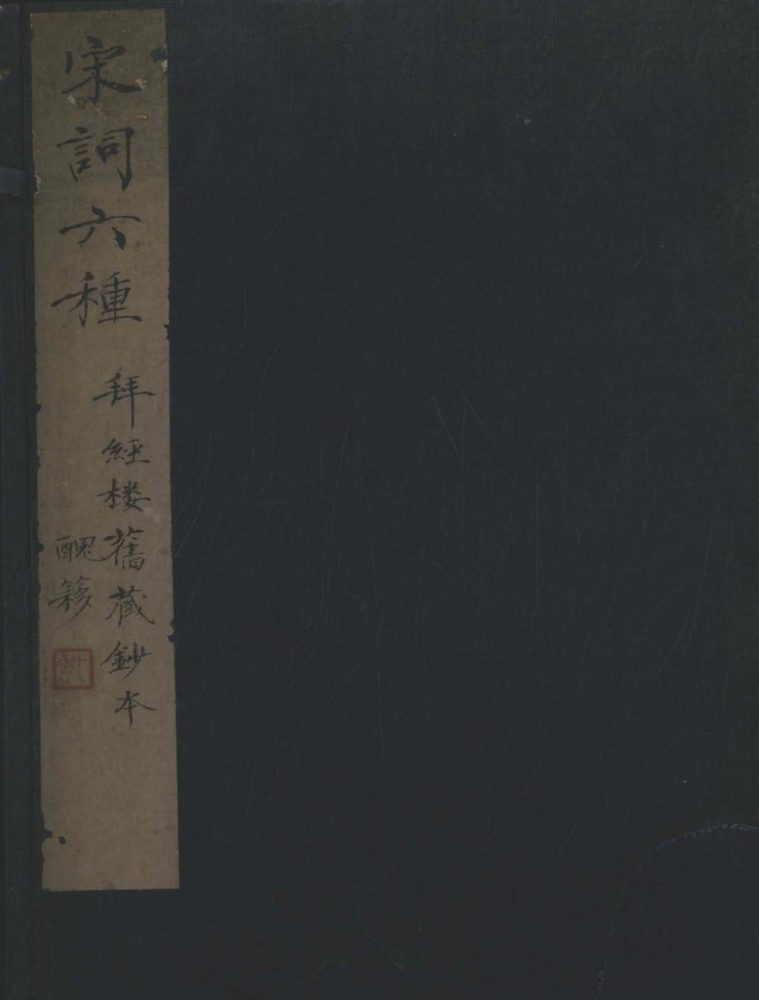 宋詞六種
拜經楼舊藏鈔本
醜簃